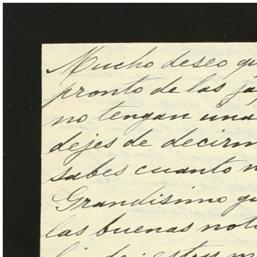 Mucho deseo qu
pronto de las ja
no tengan una
dejes de decirm
sabes cuanto n
Grandisimo gu
las buenas noti